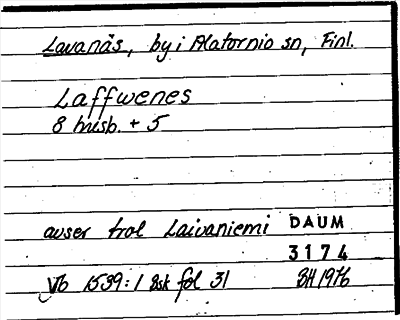 Lavanäs, by i Alatornio sn, Finl.
Laffwenes
8 husb. + 5
avser trol Laivaniemi DAUM
3174
Vb 1539:1 Bsk fol 31 BH 1976